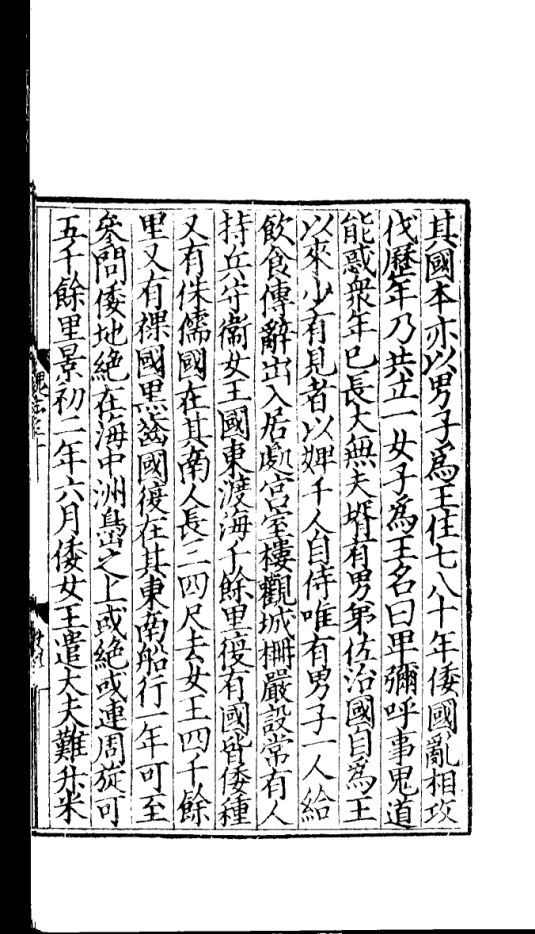 其國本亦以男子爲王住七八十年倭國亂相攻
伐歷年乃共立一女子爲王名曰卑彌呼事鬼道
能惑衆年已長大無夫壻有男弟佐治國自爲王
以來少有見者以婢千人自侍唯有男子一人給
飲食傳辭出入居處宮室樓觀城柵嚴設常有人
持兵守衞女王國東渡海千餘里復有國皆倭種
又有侏儒國在其南人長三四尺去女王四千餘
里又有裸國黑齒國復在其東南船行一年可至
參問倭地絕在海中洲㠀之上或絕或連周旋可
五千餘里景初二年六月倭女王遣大夫難升米